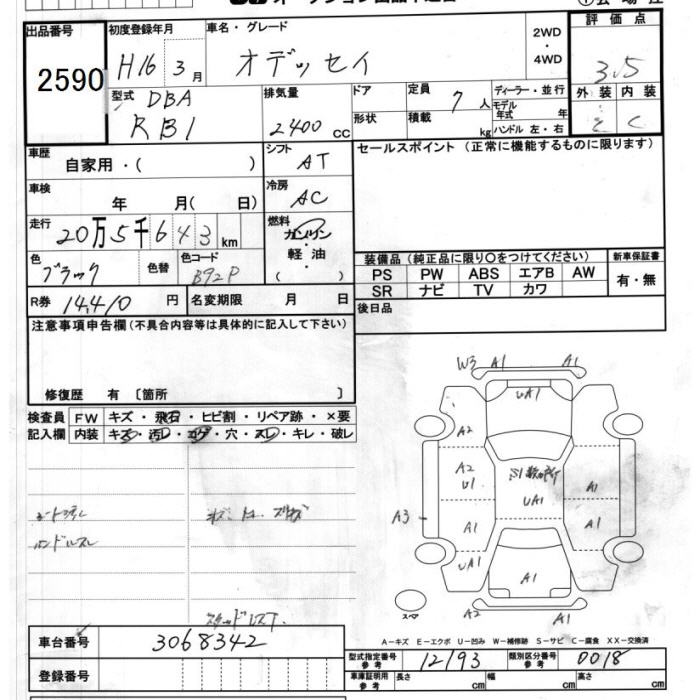 出品番号
2590
初度登録年月
H16 3月
車名・グレード
オデッセイ
2WD
・
4WD
評価点
3.5
外装 内装
C C
型式 DBA
RB1
排気量
2400 CC
ドア
形状
定員 7人
積載 kg
ディーラー・並行
モデル年式 年
ハンドル 左・右
車歴
自家用・( )
シフト
AT
セールスポイント(正常に機能するものに限ります)
車検
年 月( 日)
冷房
AC
走行
20万5千643km
燃料
ガソリン
軽油
( )
色
ブラック
色替
色コード
B92P
装備品(純正品に限り〇をつけてください)
新車保証書
PS PW ABS エアB AW
有・無
SR ナビ TV カワ
R券 14,410円
名変期限 月 日
後日品
注意事項申告欄(不具合内容等は具体的に記入して下さい)
修復歴 有 〔箇所 〕
検査員
記入欄
FW キズ・飛石・ヒビ割・リペア跡・×要
内装 キズ・汚レ・コゲ・穴・スレ・キレ・破レ
W3 A1 A1
UA1
A2
A2
U1
S1
UA1
A1
A3
A1
A1
UA1
A1
A2
A1
スペア
ハンドルスレ
A-キズ E-エクボ U-凹み W-補修跡 S-サビ C-腐食 XX-交換済
車台番号
3068342
型式指定番号
参考
12193
類別区分番号
参考
0018
登録番号
車庫証明用
参考
長さ cm
幅 cm
高さ cm